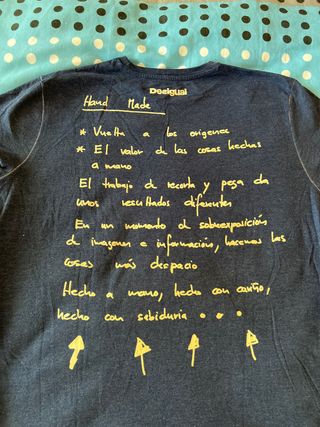 Desigual
Hand Made
* Vuelta a los orígenes
* El valor de las cosas hechas
a mano
El trabajo de recorta y pega da
unos resultados diferentes
En un momento de sobreexposición
de imagenes e información, hacemos las
cosas más despacio
Hecho a mano, hecho con cariño,
hecho con sabiduria • • •